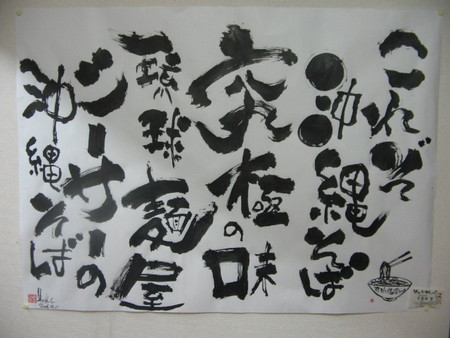 これぞ
沖縄そば
究極の味
琉球麺屋
シーサーの
沖縄そば